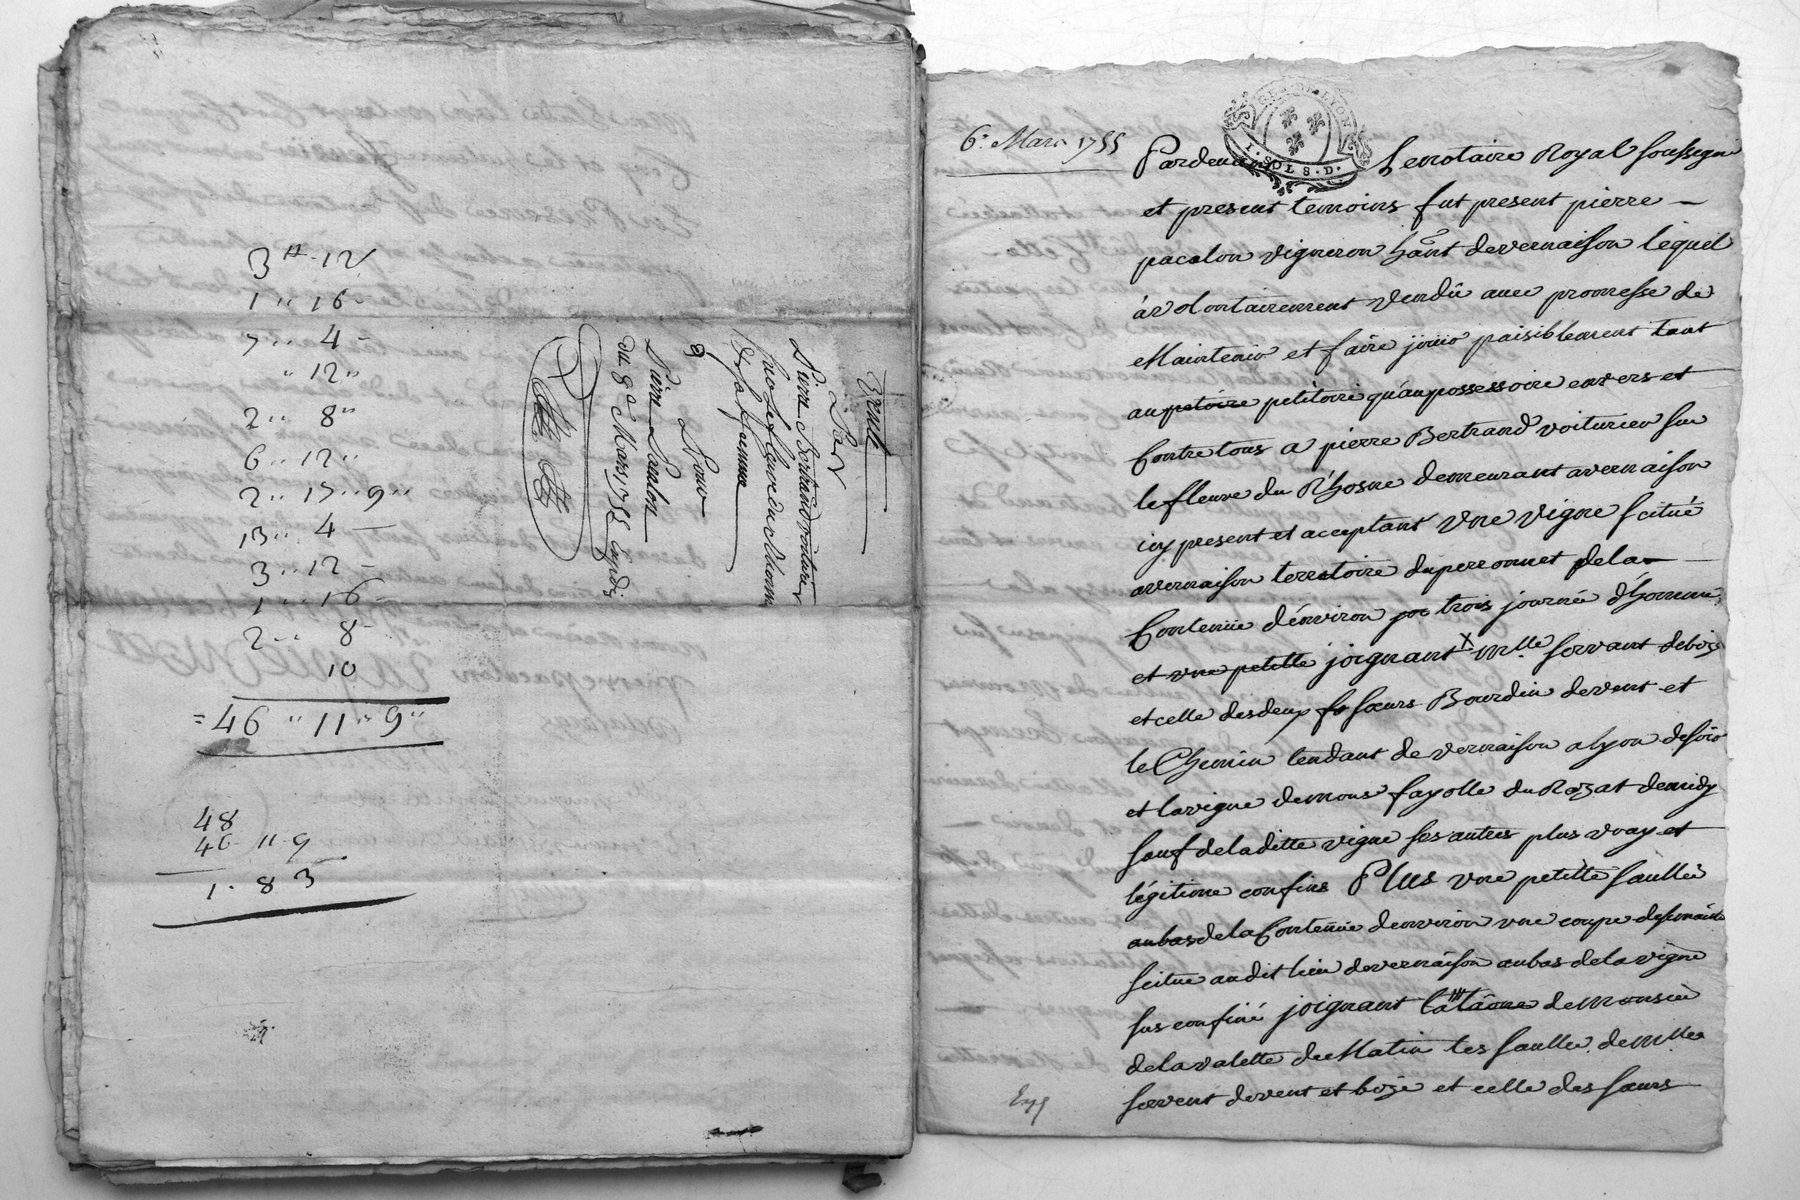 3ʰ - 12
1 " 16 -
7 " 4 -
" 12 "
2 " 8 "
6 " 12 "
2 " 15 " 9 "
13 " 4 -
3 " 12 -
1 " 16 -
2 " 8 -
10
= 46 " 11 " 9 "
48
46 11 9
1 . 8 3
Vente
Par
Pierre Bertrand voiturier
sur le fleuve du Rhosne
Pour
Pierre Pacalon
du 6e Mars 1755
6e Mars 1755
GEN. DE LYON
1. SOLS. D.
Pardevant Le notaire Royal soussigné
et present temoins fut present pierre
pacalon vigneron hant de vernaison lequel
a volontairement vendû avec promesse de
Maintenir et faire joüir paisiblement tant
au petoire petitoire qu'au possessoire envers et
Contre tous a pierre Bertrand voiturier sur
le fleuve du Rhosne demeurant a vernaison
icy present et acceptant vne vigne scitué
a vernaison territoire du peronnet de la
Contenüe d'environ trois journée d'homme
et vne petitte joignant X Mlle servant de bize
et celle des deux sœurs Bourdin de vent et
le Chemin tendant de vernaison a lyon de soir
et la vigne de mons fayolle du Razat de midy
sauf de la ditte vigne ses autres plus vray et
légitime confins Plus vne petitte saullée
au bas de la Contenüe d'environ vne coupe
scitue au dit lieu de vernaison au bas de la vigne
sus confiné joignant de monsieur
de la valette de Matin les saullée de Mlle
servent de vent et bize et celle des sœurs